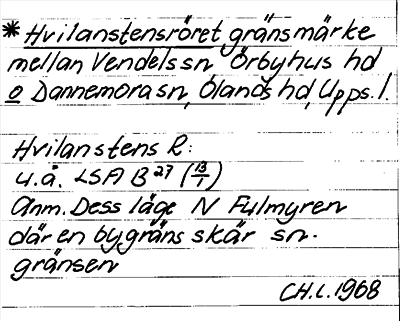 *Hvilanstensröret, gränsmärke
mellan Vendels sn, Örbyhus hd
o Dannemora sn, Olands hd, Upps. l.
Hvilanstens R:
u.å. LSA B 27 (13/1)
Anm. Dess läge N Fulmyren
där en bygräns skär sn.
gränsen
CH.L. 1968